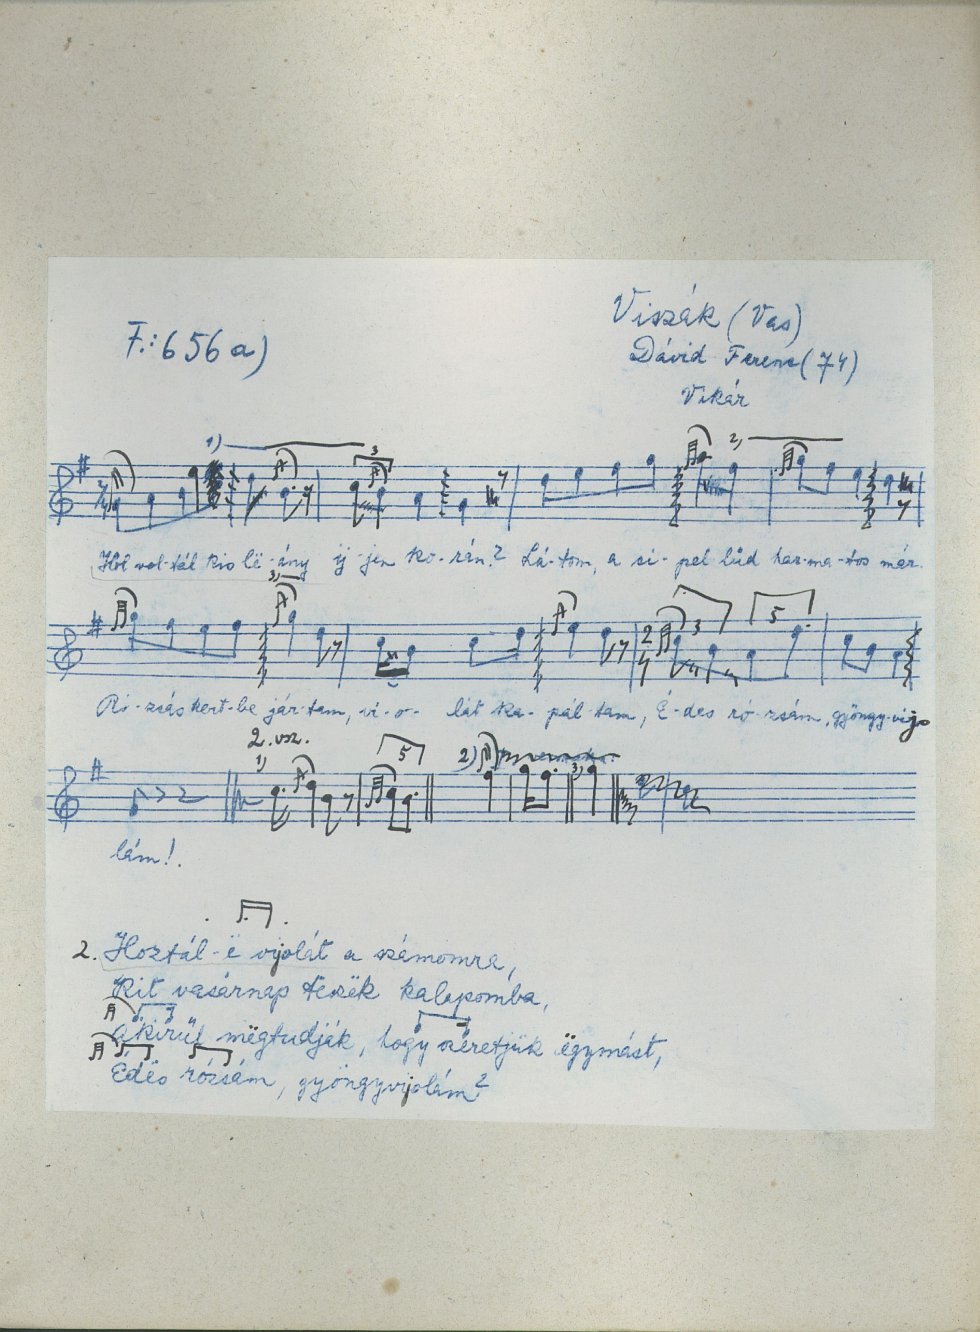 F.: 656 a)
Viszák (Vas)
Dávid Ferenc (74)
Vikár
1)
3
2)
Hol vol-tál kis lë-ány ij-jen ko-rán? Lá-tom, a ci-pel lűd har-ma-tos már.
3)
3
5
Ró-zsás kert-be jár-tam, vi-o-lát ka-pál-tam, É-des ró-zsám, gyöngy-vijo
2. vsz.
1)
5
2)
3)
lám!
2. Hoztál-ë vijolát a számomra,
Kit vasárnap tëszëk kalapomba,
Akirűl mëgtudják, hogy szeretjük ëgymást,
Édës rózsám, gyöngyvijolám?